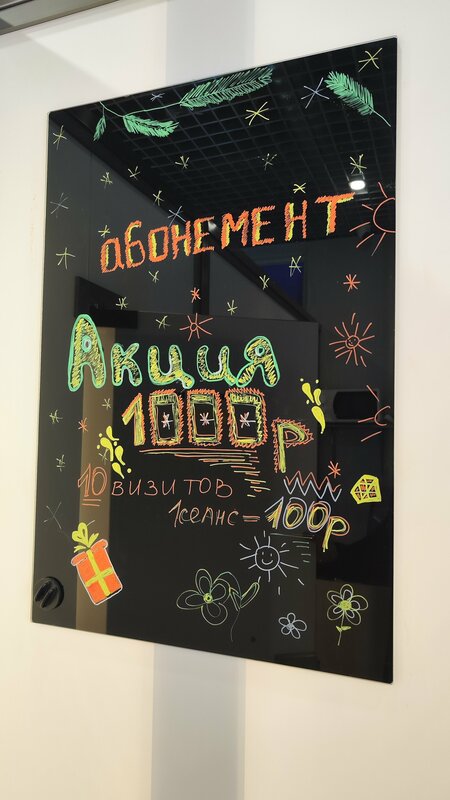 абонемент
Акция
1000р
10 визитов
1сеанс=100р